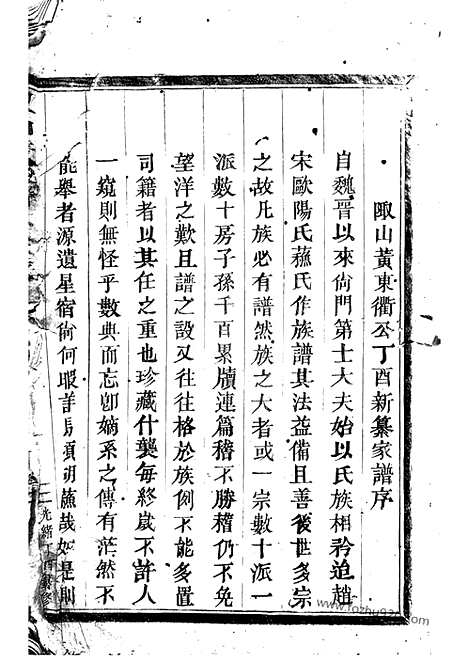 陬山黃東衢公丁酉新纂家譜序
自魏晉以來尙門第士大夫始以氏族相矜迨趙
宋歐陽氏蘓氏作族譜其法益備且善後世多宗
之故凡族必有譜然族之大者或一宗數十派一
派數十房子孫千百累牘連篇稽不勝稽仍不免
望洋之歎且譜之設又往往格於族例不能多置
司籍者以其任之重也珍藏什襲每終歲不許人
一窺則無怪乎數典而忘卽嫡系之傳有茫然不
能舉者源遺星宿尙何暇詳 項胡 哉如是則
光緒丁酉 修
www.fozhu920.com